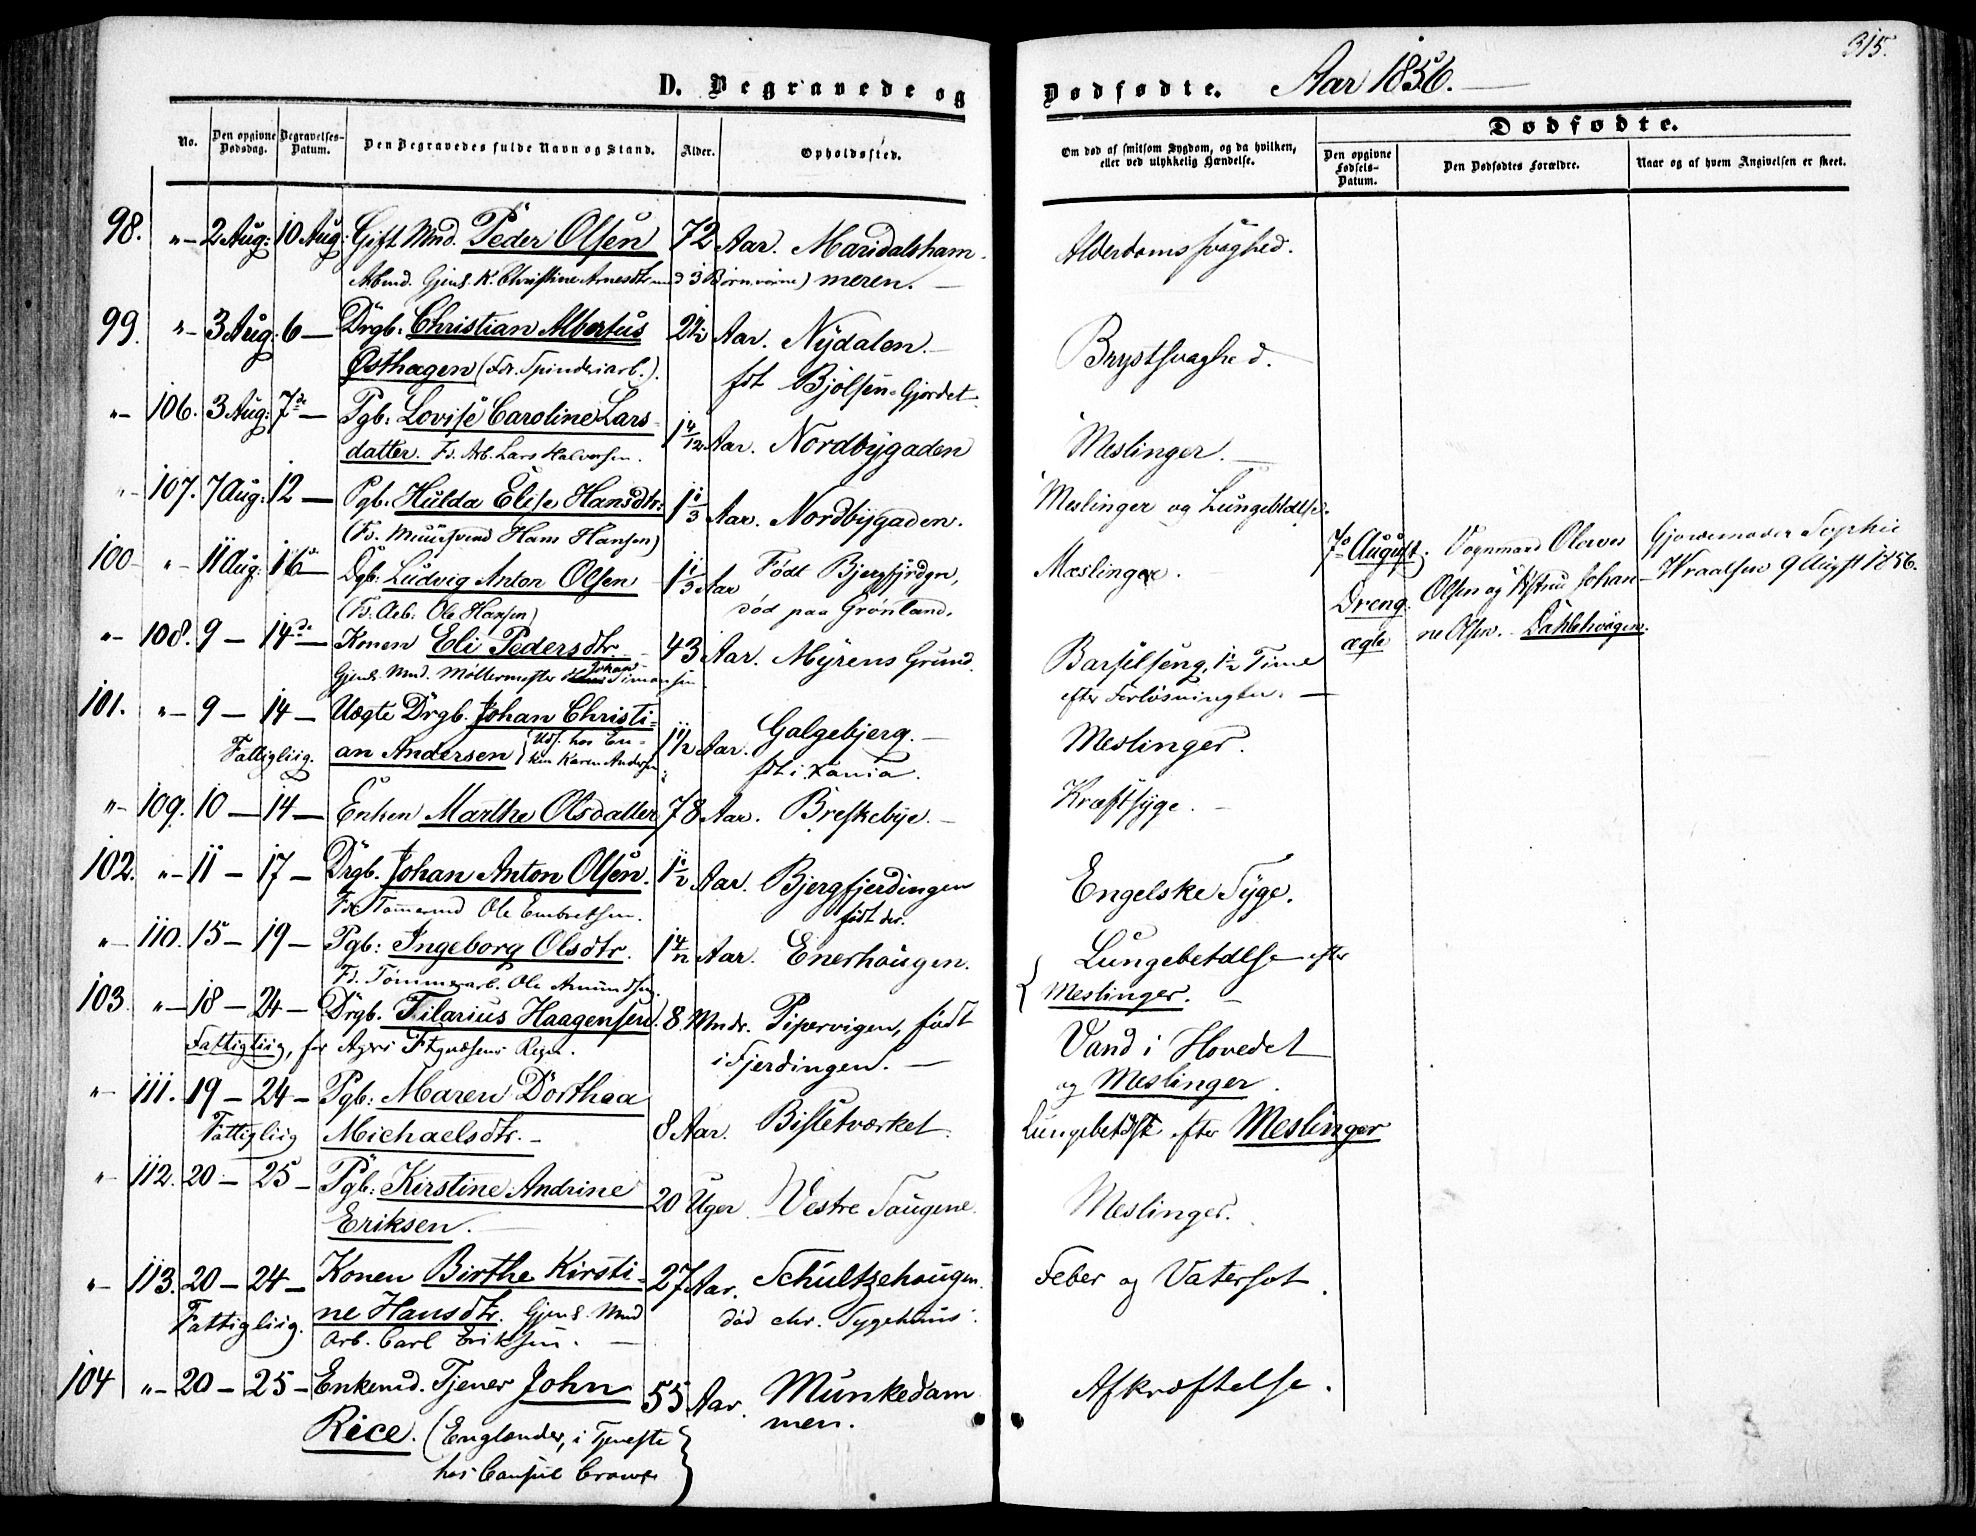 315.
D. Begravede og Dødfødte. Aar 1856.
No.
Den opgivne Dødsdag.
Begravelses-Datum.
Den Begravedes fulde Navn og Stand.
Alder.
Opholdssted.
Om død af smitsom Sygdom, og da hvilken, eller ved ulykkelig Hændelse.
Dødfødte.
Den opgivne Fødsels-Datum.
Den Dødfødtes Forældre.
Naar og af hvem Angivelsen er skeet.
98. "- 2 Aug: 10 Aug: Gift Mnd. Peder Olsen 72 Aar. Maridalsham- Alderdomssvaghed.
Gjenl. K. Christine Arnesdtr med 3 Børn meren.
99. "- 3 Aug: 6 — Drgb. Christian Albertus 2½ Aar. Nydalen. Brystsvaghed.
Østhagen (Fdr. Spinderiarb.). fdt Bjølsen-Gjordet.
"- 106. 3 Aug: 7de — Pgb: Lovise Caroline Lars- 1 4/12 Aar. Nordbygaden Meslinger.
datter. Fd. Arb. Lars Halvorsen.
"- 107. 7 Aug: 12 — Pgb. Hulda Elise Hansdtr: 1 1/3 Aar. Nordbygaden. Meslinger og Lungebtdlse.
(Fd. Muursvend Hans Hansen)
100 "- 11 Aug: 16 — Dgb: Ludvig Anton Olsen Aar Født Bjergfjrdgn, Mæslinger.
(Fd. Arb. Ole Hansen) død paa Grønland.
7de August. Vognmand Olaves Gjordemoder Sophie
Dreng Olsen og Johan- 9 August 1856.
ægte ne Olsen.
"- 108. 9 — 14de — Konen Eli Pedersdtr. 43 Aar. Myrens Grund. Barselseng, ½ Time
Gjenl. Mnd. Møllermester Johan Simonsen efter Forløsningen.
101. "- 9 — 14 — Uægte Drgb. Johan Christi- 1½ Aar. Galgebjerg. Meslinger.
Fattigliig. an Andersen Uds. hos En- fdt i Xania.
ken Karen Andersen
"- 109. 10 — 14 — Enken Marthe Olsdatter 78 Aar. Breskebye. Kræftsyge.
102. "- 11 — 17 — Drgb. Johan Anton Olsen. 1½ Aar. Bjergfjerdingen Engelske Syge.
Fdr Tømmermd Ole Embretsen. født der.
"- 110. 15 — 19 — Pgb: Ingeborg Olsdtr. 1 4/12 Aar. Enerhaugen. Lungebetdlse efter
Fd. Tømmerarb. Ole Amundsen. Meslinger.
103. "- 18 — 24 — Drgb. Filarius Haagensen. 8 Mndr. Pipervigen, født Vand i Hovedet
Fattigliig, for i Fjerdingen. og Meslinger.
"- 111. 19 — 24 — Pgb: Maren Dorthea
Fattigliig Michaelsdtr. 8 Aar. Bisletværket. Lungebetdlse efter Meslinger
"- 112. 20 — 25 — Pgb: Kirstine Andrine 20 Uger Vestre Saugene. Meslinger.
Eriksen.
"- 113. 20 — 24 — Konen Birthe Kirsti- 27 Aar. Schultzehaugen. Feber og Vatersot.
Fattigliig. ne Hansdtr. Gjenl. Mnd død chr. Sygehuus.
Arb. Carl Eriksen.
104 "- 20 — 25 — Enkemd. Tjener John 55 Aar. Munkedam Afkræftelse.
Rice. (Englænder, i Tjeneste men.
hos Consul Crowe